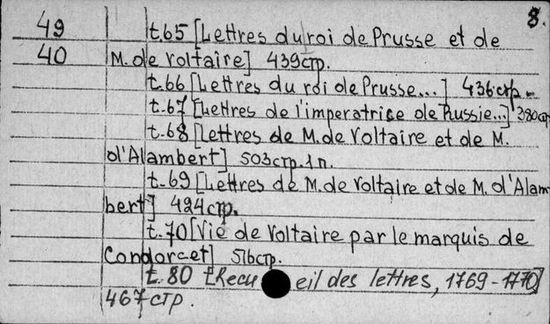 8.
49 t.65 [Lettres du roi de Prusse et de
40 M. de Voltaire] 439стр.
t.66 [Lettres du roi de Prusse...] 436стр.
t.67 [Lettres de l'imperatrice de Russie...] 380стр
t.68 [Lettres de M. de Voltaire et de M.
d'Alambert] 503стр. 1л.
t.69 [Lettres de M. de Voltaire et de M. d'Alam
bert] 424стр.
t.70 [Vie de Voltaire par le marquis de
Condorcet] 516стр.
t.80 [Recueil des lettres, 1769-1770]
467стр.